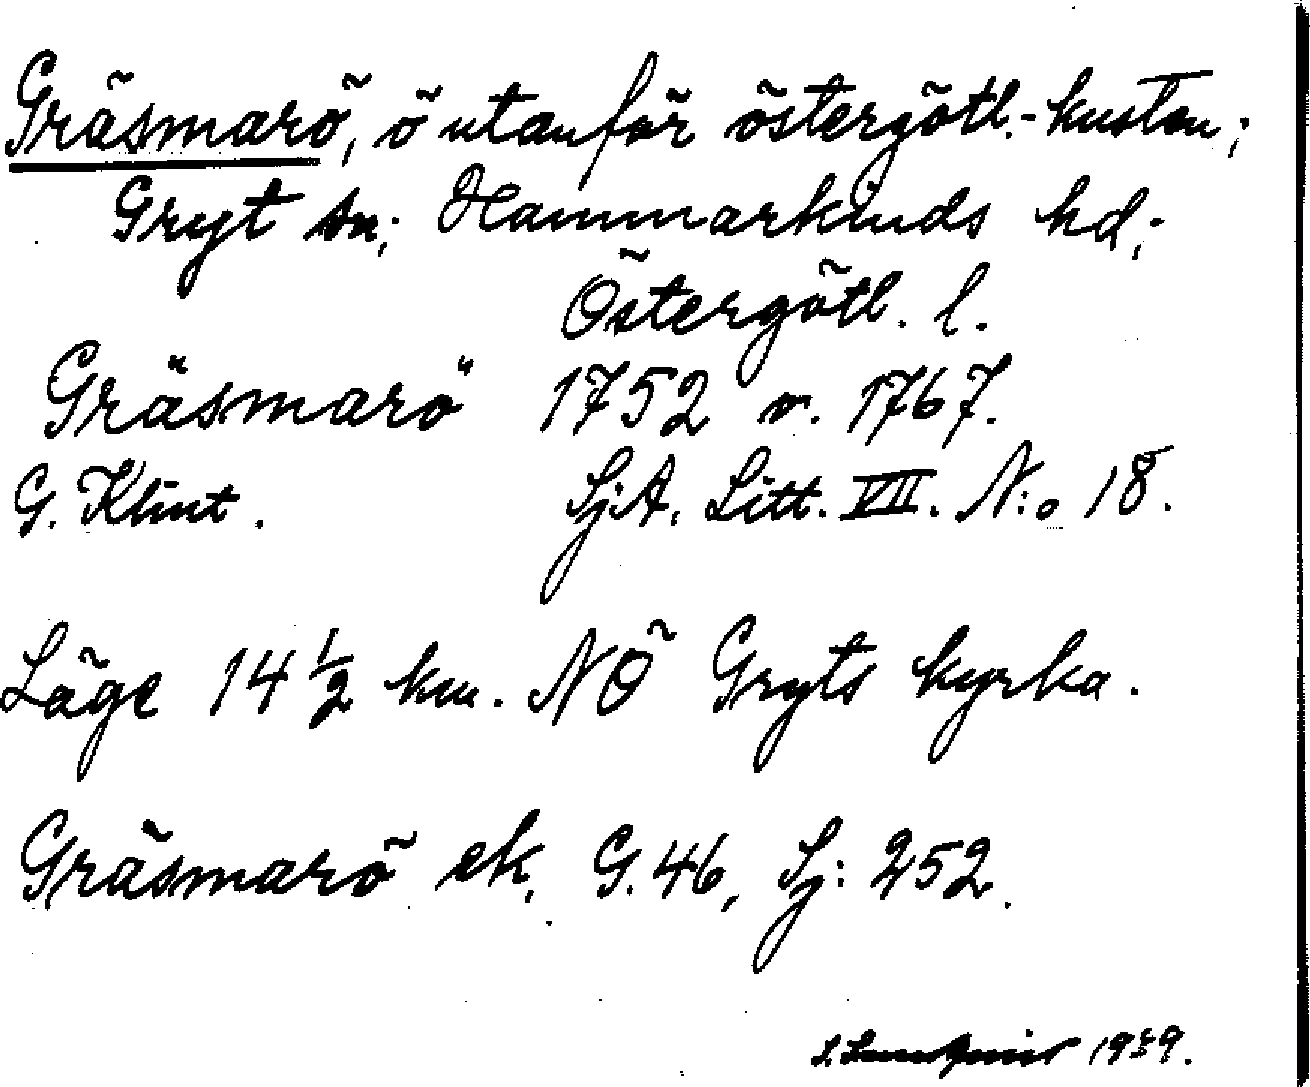 Gräsmarö, ö utanför östergötl.-kusten;
Gryt sn; Hammarkinds hd;
Östergötl. l.
Gräsmarö 1752 o. 1767.
G. Klint. Sj.A. Litt. VII. N:o 18.
Läge 14 1/2 km. NÖ Gryts kyrka.
Gräsmarö ek. G.46, Sj: 252.
1939.